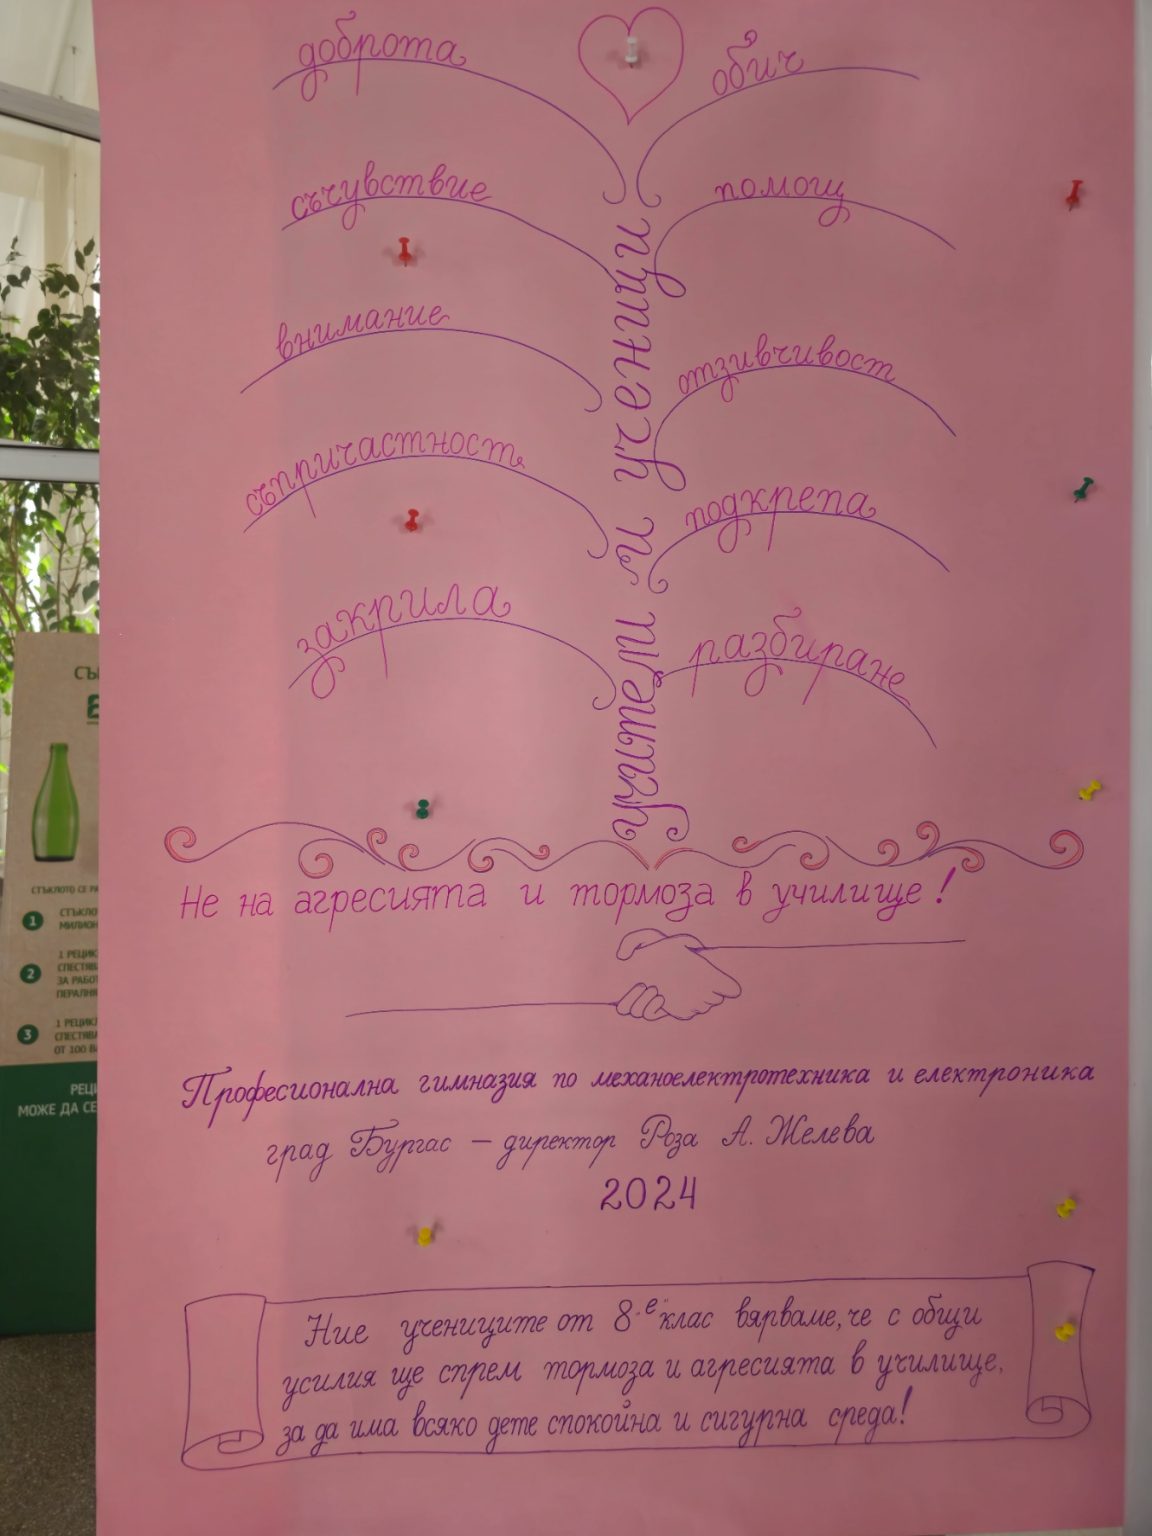 доброта
обич
съчувствие
помощ
внимание
отзивчивост
съпричастност
подкрепа
закрила
разбиране
учители и ученици
Не на агресията и тормоза в училище!
Професионална гимназия по механоелектротехника и електроника
град Бургас – директор Роза А. Желева
2024
Ние учениците от 8-"е" клас вярваме, че с общи
усилия ще спрем тормоза и агресията в училище,
за да има всяко дете спокойна и сигурна среда!
СТЪКЛОТО СЕ
1
2
1 РЕЦИК
ЗА
3
1 РЕЦИК
ОТ 100
МОЖЕ ДА СЕ